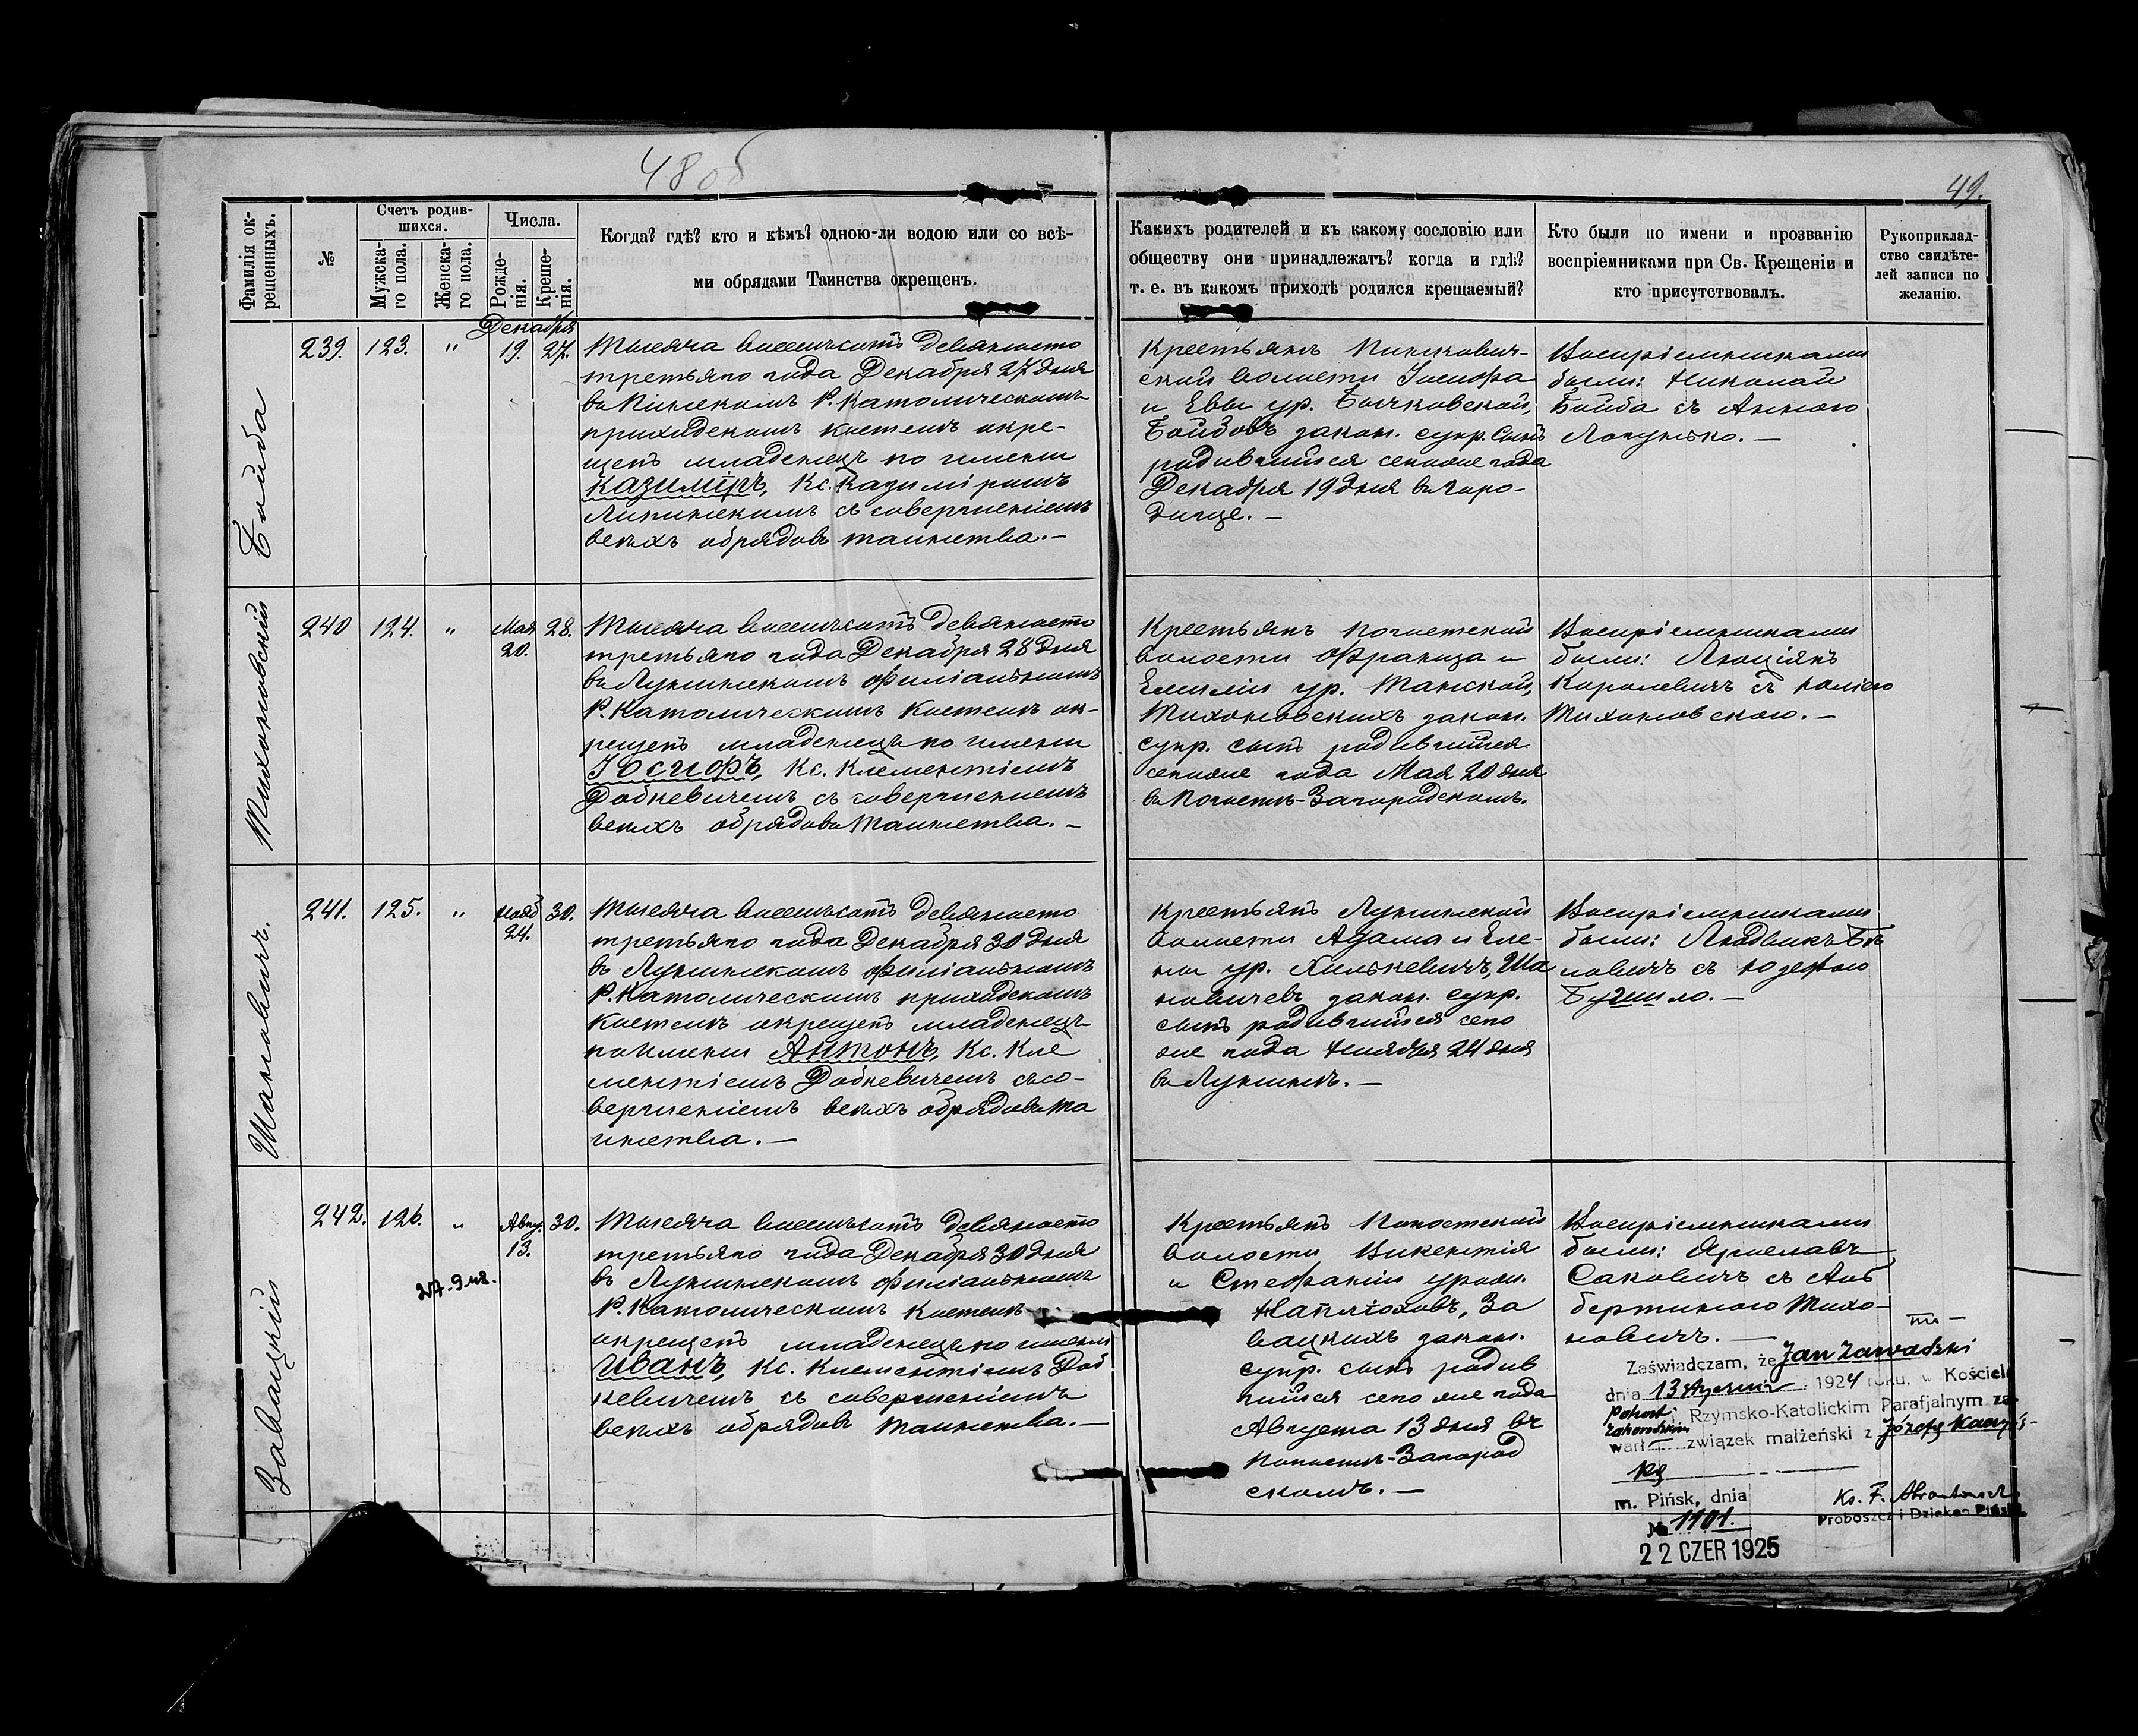 48 об
49.
Фамилія ок-
рещенныхъ.
№
Счетъ родив-
шихся.
Мужска-
го пола.
Женска-
го пола.
Числа.
Рожде-
нія.
Креще-
нія.
Когда? гдѣ? кто и кѣмъ? одною-ли водою или со всѣ-
ми обрядами Таинства окрещенъ.
Какихъ родителей и къ какому сословію или
обществу они принадлежатъ? когда и гдѣ?
т. е. въ какомъ приходѣ родился крещаемый?
Кто были по имени и прозванію
воспріемниками при Св. Крещеніи и
кто присутствовалъ.
Рукоприклад-
ство свидѣте-
лей записи по
желанію.
Бойба
239.
123.
"
Декабря
19.
27.
Тысяча восемьсотъ девяносто
третьяго года Декабря 27 дня
въ Пинскомъ Р. Католическомъ
приходскомъ костелѣ окре-
щенъ младенецъ по имени
Казиміръ, Кс. Казиміромъ
Липинскимъ съ совершеніемъ
всѣхъ обрядовъ таинства.—
Крестьянъ Пинкович-
ской волости Іосифа
и Евы ур. Бычковской,
Бойбовъ закон. супр. сынъ
родившійся сего же года
Декабря 19 дня въ Горо-
дище.—
Воспріемниками
были: Николай
Бойба съ Анною
Лопунько.—
Тихоновскій
240
124.
"
Мая
20.
28.
Тысяча восемьсотъ девяносто
третьяго года Декабря 28 дня
въ Лунинскомъ филіальномъ
Р. Католическомъ костелѣ ок-
рещенъ младенецъ по имени
Іосифъ, Кс. Клементіемъ
Добкевичемъ съ совершеніемъ
всѣхъ обрядовъ Таинства.—
Крестьянъ Погостской
волости Франца и
Емиліи ур. Танской,
Тихоновскихъ закон.
супр. сынъ родившійся
сего же года Мая 20 дня
въ Погостѣ-Загородскомъ.
Воспріемниками
были: Люціянъ
Королевичъ съ Юліею
Тихоновскою.—
Шановичъ.
241.
125.
"
Нояб
24.
30.
Тысяча восемьсотъ девяносто
третьяго года Декабря 30 дня
въ Лунинскомъ филіальномъ
Р. Католическомъ приходскомъ
костелѣ окрещенъ младенецъ
по имени Антонъ, Кс. Кле
ментіемъ Добкевичемъ съ со-
вершеніемъ всѣхъ обрядовъ та
инства.—
Крестьянъ Лунинской
волости Адама и Еле-
ны ур. Хилькевичъ, Ша
новичевъ закон. супр.
сынъ родившійся сего
же года Ноября 24 дня
въ Лунинѣ.—
Воспріемниками
были: Людвикъ
новичъ съ Юзефою
Завацкій
242.
126.
"
Авгу.
13.
30.
Тысяча восемьсотъ девяносто
третьяго года Декабря 30 дня
въ Лунинскомъ филіальномъ
Р. Католическомъ костелѣ
окрещенъ младенецъ по имени
Иванъ, Кс. Клементіемъ Доб
кевичемъ съ совершеніемъ
всѣхъ обрядовъ таинства.—
Крестьянъ Погостской
волости Викентія
и Стефаніи урож.
За
вацкихъ закон.
супр. сынъ родив
шійся сего же года
Августа 13 дня въ
Погостѣ-Загород
скомъ.—
Воспріемниками
были: Ярославъ
Саковичъ съ Аль
бертиною Тихо-
новичъ.—
Zaświadczam, że Jan Zawadzki
dnia 13 stycznia 1924 roku, w Kościele
Pohost Rzymsko-Katolickim Parafjalnym za-
Zahorodskim
warł związek małżeński z Józefą
m. Pińsk, dnia
№ 1101.
Ks. F.
Proboszcz i Dziekan Piński
22 CZER 1925